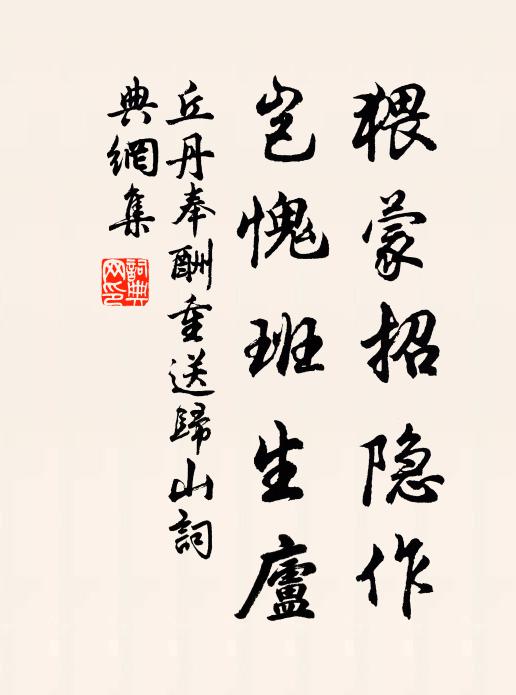 猥蒙招隐作
岂愧班生廬
丘丹奉酬重送歸山詞
典網集
詞典
网印